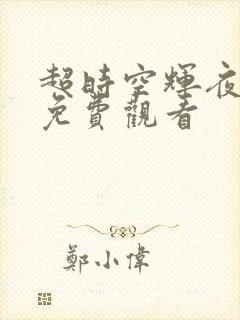 超時空輝夜
免費觀看
鄭小偉